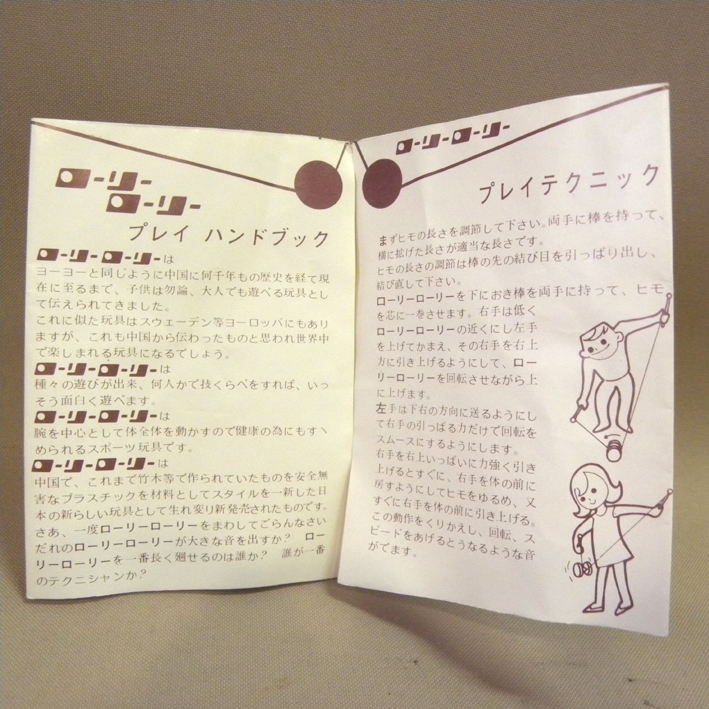 ローリー
ローリー
プレイ ハンドブック
ローリーローリーは
ヨーヨーと同じように中国に何千年もの歴史を経て現
在に至るまで、子供は勿論、大人でも遊べる玩具とし
て伝えられてきました。
これに似た玩具はスウェーデン等ヨーロッパにもあり
ますが、これも中国から伝わったものと思われ世界中
で楽しまれる玩具になるでしょう。
ローリーローリーは
種々の遊びが出来、何人かで技くらべをすれば、いっ
そう面白く遊べます。
ローリーローリーは
腕を中心として体全体を動かすので健康の為にもすヽ
められるスポーツ玩具です。
ローリーローリーは
中国で、これまで竹木等で作られていたものを安全無
害なプラスチックを材料としてスタイルを一新した日
本の新らしい玩具として生れ変り新発売されたものです。
さあ、一度ローリーローリーをまわしてごらんなさい
だれのローリーローリーが大きな音を出すか? ロー
リーローリーを一番長く廻せるのは誰か? 誰が一番
のテクニシャンか?
ローリーローリー
プレイテクニック
まずヒモの長さを調節して下さい。両手に棒を持って、
横に拡げた長さが適当な長さです。
ヒモの長さの調節は棒の先の結び目を引っぱり出し、
結び直して下さい。
ローリーローリーを下におき棒を両手に持って、ヒモ
を芯に一巻させます。右手は低く
ローリーローリーの近くにし左手
を上げてかまえ、その右手を右上
方に引き上げるようにして、ロー
リーローリーを回転させながら上
に上げます。
左手は下右の方向に送るようにし
て右手の引っぱる力だけで回転を
スムースにするようにします。
右手を右上いっぱいに力強く引き
上げるとすぐに、右手を体の前に
戻すようにしてヒモをゆるめ、又
すぐに右手を体の前に引き上げる。
この動作をくりかえし、回転、ス
ピードをあげるとうなるような音
がでます。